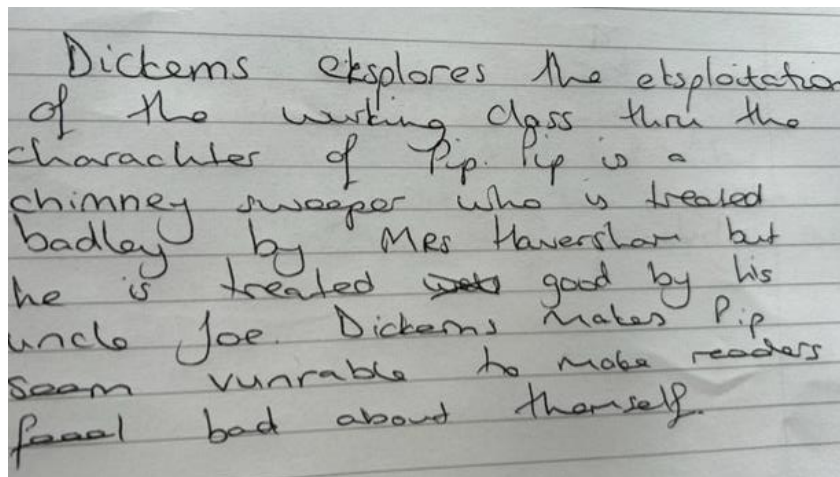 Dickems eksplores the eksploitation
of the wurking class thru the
charachter of Pip. Pip is a
chimney sweeper who is treated
badley by MRs Haversham but
he is treated good by his
uncle Joe. Dickems makes Pip
seem vunrable to make readers
feeel bad about themself.